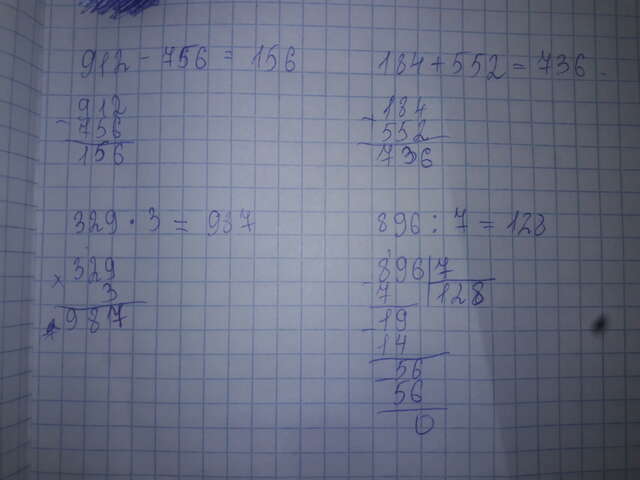 912 - 756 = 156
- 912
756
156
329 · 3 = 987
× 329
3
987
184 + 552 = 736
- 184
552
736
896 : 7 = 128
- 896 | 7
7 | 128
- 19
14
- 56
56
0